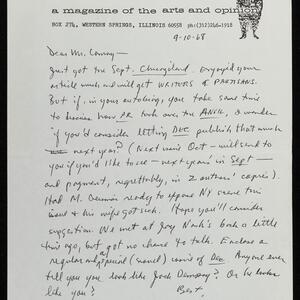 a magazine of the arts and opinion
BOX 274, WESTERN SPRINGS, ILLINOIS 60558 ph:(312)246-1918
9-10-68
Dear Mr. Conroy—
Just got the Sept. Chicagoland. Enjoyed your
article much and will get WRITERS & PARTISANS.
But if, in your autobiog, you take some time
to discuss how PR took over the ANVIL, I wonder
if you'd consider letting DEC publish that much
next year? (Next mine Oct—will send to
you if you'd like to see—next year's in Sept—
and payment, regrettably, in 2 authors' copies).
Had M. ready to expose NY scene this
issue & his wife got sick. Hope you'll consider
suggestion. We met at Joy Nash's book a little
time ago, but got no chance to talk. Enclose a
regular and a special (novel) issue of DEC. Anyone ever
tell you you look like Jack Dempsey? Or he looks
like you?
Best,